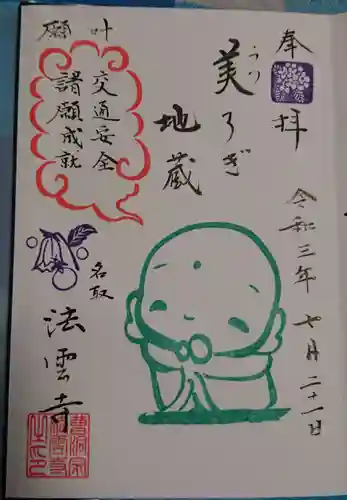 奉拝
令和三年七月二十一日
美ろぎ
うつ
地蔵
叶願
交通安全
諸願成就
名取
法雲寺